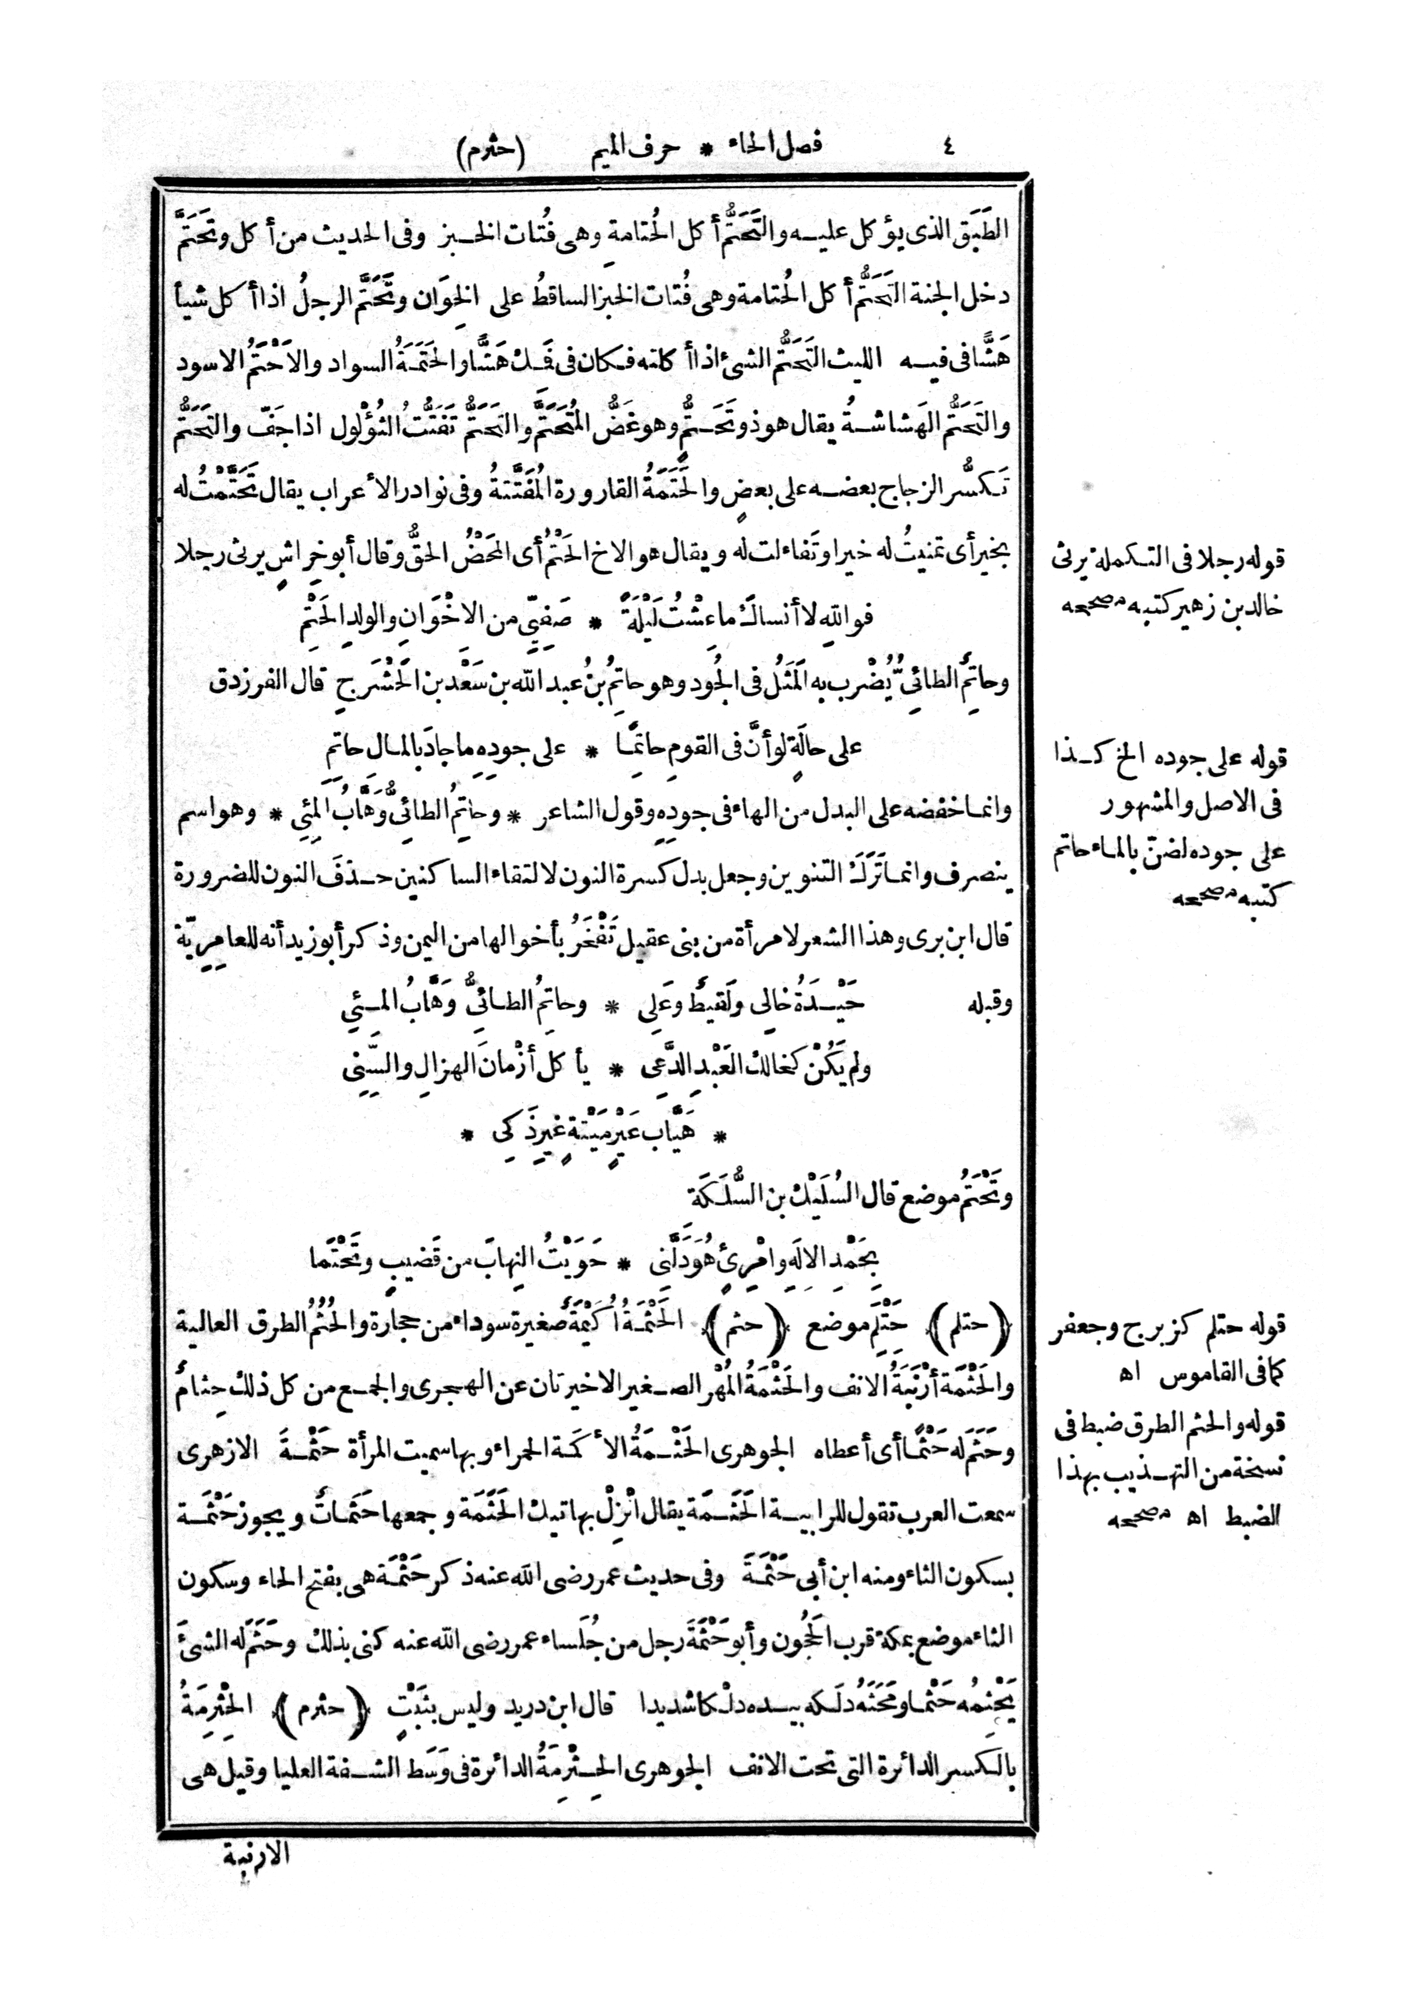 ٤ فصل الحاء * حرف الميم (حثرم)
الطَبَق الذى يؤكل عليه والتَّحَتُّمُ أكل الحُتامةِ وهى فُتات الخبز وفى الحديث من أكل وتَحَتَّمَ
دخل الجنة التَّحَتُّمُ أكل الحُتامة وهى فُتات الخبز الساقطُ على الخِوَان وتَحَتَّمَ الرجلُ اذا أكل شيأ
هَشًّا فى فيه الليث التَحَتُّم الشئ اذا أكلته فكان فى فَمِك هَشًّا والحَتَمَةُ السواد والاَحْتَمُ الاسود
والتَحَتُّم الهَشاشةُ يقال هو ذو تَحَتُّمٍ وهو غَضُّ المُتَحَتَّمِ والتَحَتُّم تَفَتُّتُ الثُؤْلول اذا جَفّ والتَحَتُّم
تَكسُّر الزجاج بعضه على بعضٍ والحَتَمَةُ القارورة المُفَتَّتةُ وفى نوادر الأعراب يقال تَحَتَّمْتُ له
بخير أى تمنيتُ له خيرا وتَفاءلت له ويقال هو الاخ الحَتْمُ أى المَحْضُ الحقُّ وقال أبو خِراشٍ يرثى رجلا
فواللهِ لا أنساكَ ما عِشْتُ لَيْلَةً * صَفِيّى من الاخْوَانِ والولدِ الحَتْمِ
وحاتِمٌ الطائِىُّ يُضْرب به المَثَلُ فى الجُود وهو حاتِمُ بنُ عبد الله بن سَعْد بن الحَشْرَجِ قال الفرزدق
على حالَةٍ لو أنَّ فى القومِ حاتِمًا * على جودِهِ ما جادَ بالمال حاتِمِ
وانما خفضه على البدل من الهاء فى جودِهِ وقول الشاعر * وحاتِمُ الطائِىُّ وَهَّابُ المِئِى * وهو اسم
ينصرف وانما تَرَكَ التنوين وجعل بدل كسرة النون لالتقاء الساكنين حذفَ النون للضرورة
قال ابن برى وهذا الشعر لامرأة من بنى عقيل تَفْخَرُ بأخوالها من اليمن وذكر أبو زيد أنه للعامِرِيّة
وقبله حَيْدَةُ خالِى ولَقيطٌ وعَلِى * وحاتِمُ الطائِىُّ وَهَّابُ المِئِى
ولم يَكُنْ كخالك العَبْدِ الدَّعِى * يأكل أزْمانَ الهزالِ والسِّنِى
* هَيَّاب عَيْرٍ مَيْتةٍ غيرِ ذَكِى *
وتَحْتَمُ موضع قال السُلَيْك بن السُّلَكَة
بِحَمْدِ الالَهِ وامْرِئٍ هُوَ دَلَّنِى * حَوَيْتُ النِهابَ من قَضيبٍ وتَحْتَما
(حتلم) حَتْلَمٌ موضع (حثم) الحَثْمَةُ أُكَيْمَةٌ صغيرة سوداء من حجارة والحُثُمُ الطرق العالية
والحَثْمَة أَرْنَبَةُ الانف والحَثْمَةُ المُهْر الصغير الاخيرتان عن الهجرى والجمع من كل ذلك حِثامٌ
وحَثَمَ له حَثْمًا أى أعطاه الجوهرى الحَثْمَةُ الأكمة الحمراء وبها سميت المرأة حَثْمَةَ الازهرى
سمعت العرب تقول للرابية الحَثَمَة يقال انْزِلْ بهاتيك الحَثَمَة وجمعها حَثَماتٌ ويجوز حَثْمَة
بسكون الثاء ومنه ابن أبى حَثْمَةَ وفى حديث عمر رضى الله عنه ذكر حَثْمَة هى بفتح الحاء وسكون
الثاء موضع بمكة قرب الحَجُون وأبو حَثْمَةَ رجل من جُلَساء عمر رضى الله عنه كنى بذلك وحَثَمَ له الشئَ
يَحْثِمُه حَثْما ومَحَثَهُ دلَكه بيده دلْكا شديدا قال ابن دريد وليس بثَبْتٍ (حثرم) الحِثْرِمَةُ
بالكسر الدائرة التى تحت الانف الجوهرى الحِثْرِمَةُ الدائرة فى وَسَط الشفة العليا وقيل هى
الارنبة
قوله رجلا فى التكملة يرثى
خالد بن زهير كتبه مصححه
قوله على جوده الخ كذا
فى الاصل والمشهور
على جوده لضنّ بالماء حاتم
كتبه مصححه
قوله حتلم كزبرج وجعفر
كما فى القاموس اه
قوله والحثم الطرق ضبط فى
نسخة من التهذيب بهذا
الضبط اه مصححه